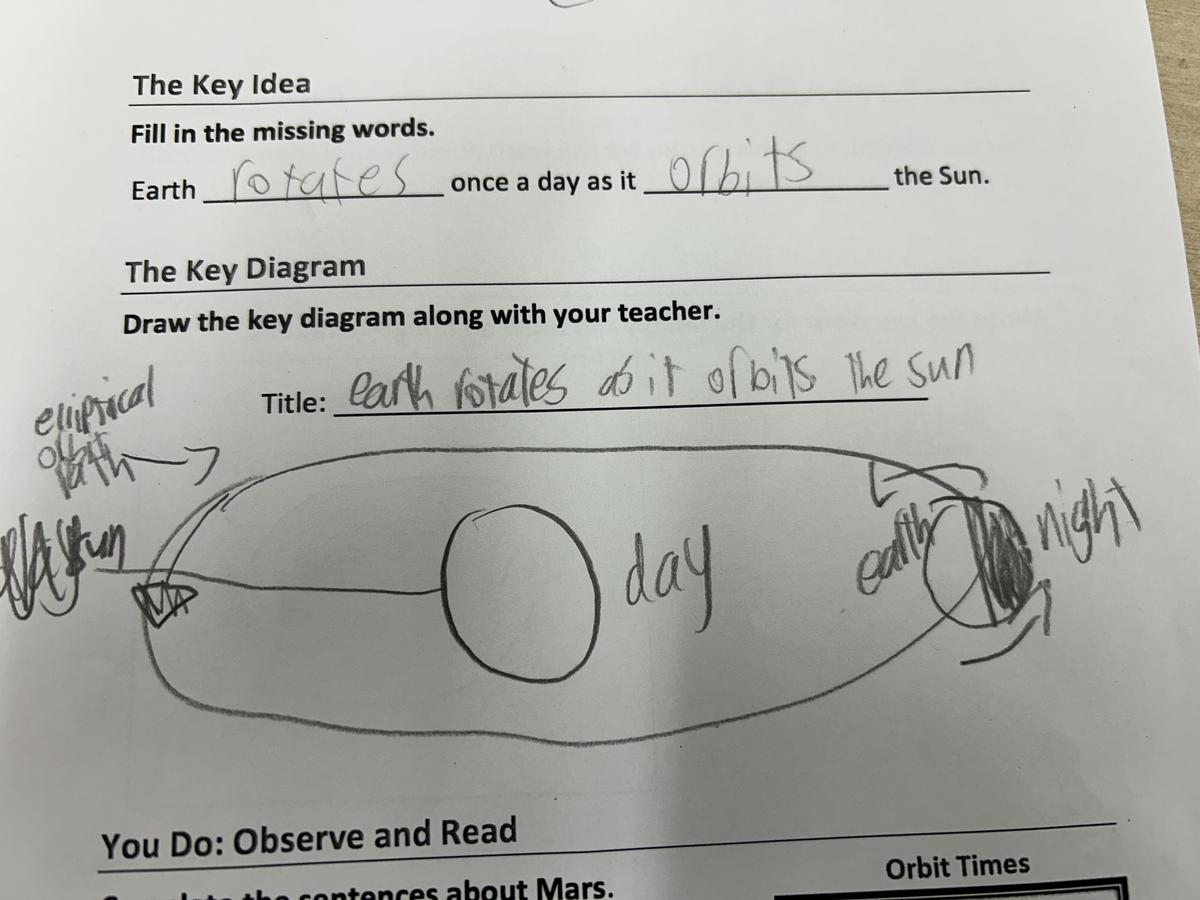 The Key Idea
Fill in the missing words.
Earth rotates once a day as it orbits the Sun.
The Key Diagram
Draw the key diagram along with your teacher.
Title: earth rotates as it orbits the sun
elliptical
orbit
path
sun
day
earth
night
You Do: Observe and Read
Orbit Times
Complete the sentences about Mars.